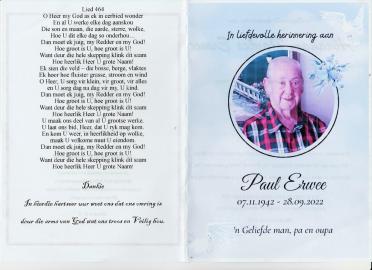 Lied 464
O Heer my God as ek in eerbied wonder
En al U werke elke dag aanskou
Die son en maan, die aarde, sterre, wolke,
Hoe U dit elke dag so onderhou...
Dan moet ek juig, my Redder en my God!
Hoe groot is U, hoe groot is U!
Want deur die hele skepping klink dit saam
Hoe heerlik Heer U grote Naam!
Ek sien die veld – die bosse, berge, vlaktes
Ek hoor hoe fluister grasse, stroom en wind
O Heer, U sorg vir klein, vir groot, vir alles
en U sorg dag na dag vir my, U kind.
Dan moet ek juig, my Redder en my God!
Hoe groot is U, hoe groot is U!
Want deur die hele skepping klink dit saam
Hoe heerlik Heer U grote Naam.
U maak ons deel van al U grootse werke.
U laat ons bid, Heer, dat U ryk mag kom.
En kom U weer, in heerlikheid op wolke,
maak U volkome want U eiendom.
Dan moet ek juig, my Redder en my God!
Hoe groot is U, hoe groot is U!
Want deur die hele skepping klink dit saam
Hoe heerlik Heer U grote Naam!
Dankie
In hierdie hartseer uur weet ons dat ons omring is
deur die arms van God wat ons troos en Veilig hou.
In liefdevolle herinnering aan
Paul Erwee
07.11.1942 - 28.09.2022
'n Geliefde man, pa en oupa